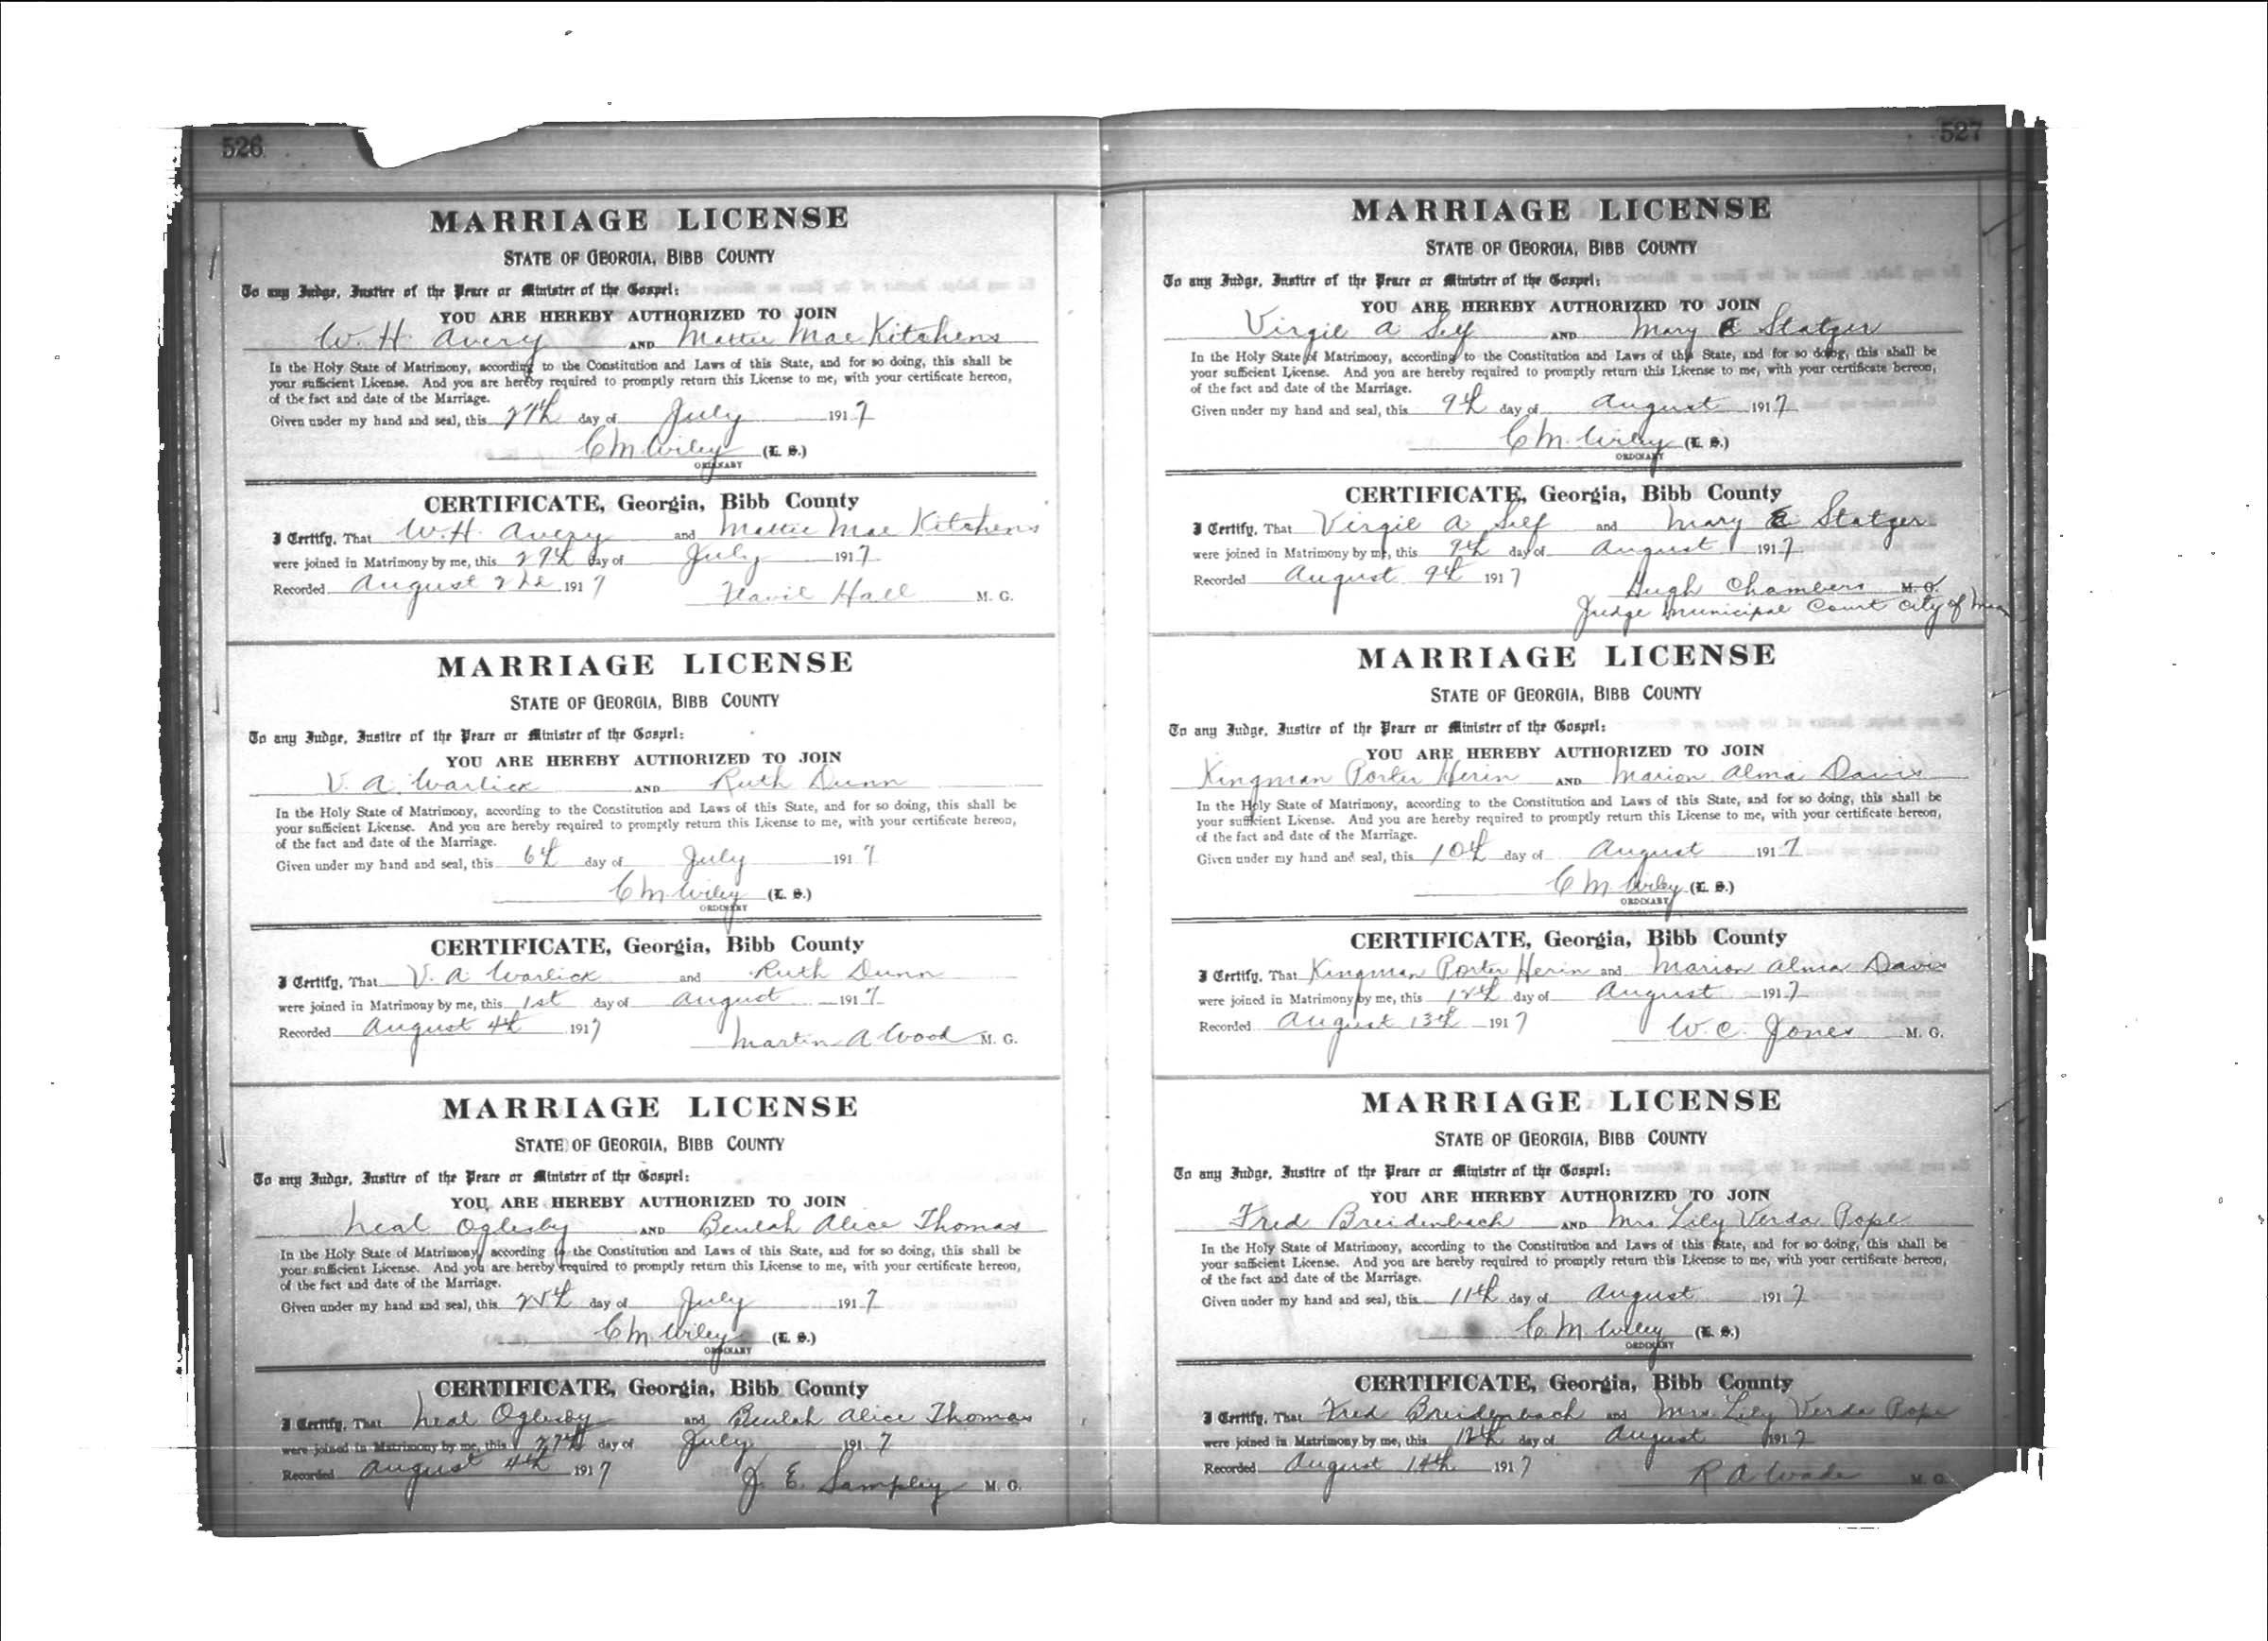 526
MARRIAGE LICENSE
STATE OF GEORGIA, BIBB COUNTY
To any Judge, Justice of the Peace or Minister of the Gospel:
YOU ARE HEREBY AUTHORIZED TO JOIN
W. H. Avery AND Mattie Mae Kitchens
In the Holy State of Matrimony, according to the Constitution and Laws of this State, and for so doing, this shall be
your sufficient License. And you are hereby required to promptly return this License to me, with your certificate hereon,
of the fact and date of the Marriage.
Given under my hand and seal, this 27th day of July 1917
C M Wiley (L. S.)
ORDINARY
CERTIFICATE, Georgia, Bibb County
I Certify, That W. H. Avery and Mattie Mae Kitchens
were joined in Matrimony by me, this 29th day of July 1917
Recorded August 2nd 1917
Hall M. G.
MARRIAGE LICENSE
STATE OF GEORGIA, BIBB COUNTY
To any Judge, Justice of the Peace or Minister of the Gospel:
YOU ARE HEREBY AUTHORIZED TO JOIN
V. A. Warlick AND Ruth Dunn
In the Holy State of Matrimony, according to the Constitution and Laws of this State, and for so doing, this shall be
your sufficient License. And you are hereby required to promptly return this License to me, with your certificate hereon,
of the fact and date of the Marriage.
Given under my hand and seal, this 6th day of July 1917
C M Wiley (L. S.)
ORDINARY
CERTIFICATE, Georgia, Bibb County
I Certify, That V. A Warlick and Ruth Dunn
were joined in Matrimony by me, this 1st day of August 1917
Recorded August 4th 1917
Martin A Wood M. G.
MARRIAGE LICENSE
STATE OF GEORGIA, BIBB COUNTY
To any Judge, Justice of the Peace or Minister of the Gospel:
YOU ARE HEREBY AUTHORIZED TO JOIN
Neal Oglesby AND Beulah Alice Thomas
In the Holy State of Matrimony, according to the Constitution and Laws of this State, and for so doing, this shall be
your sufficient License. And you are hereby required to promptly return this License to me, with your certificate hereon,
of the fact and date of the Marriage.
Given under my hand and seal, this day of July 1917
C M Wiley (L. S.)
ORDINARY
CERTIFICATE, Georgia, Bibb County
I Certify, That Neal Oglesby and Beulah Alice Thomas
were joined in Matrimony by me, this 27th day of July 1917
Recorded August 4th 1917
J. E. Sampley M. G.
527
MARRIAGE LICENSE
STATE OF GEORGIA, BIBB COUNTY
To any Judge, Justice of the Peace or Minister of the Gospel:
YOU ARE HEREBY AUTHORIZED TO JOIN
Virgil A Self AND Mary E Statger
In the Holy State of Matrimony, according to the Constitution and Laws of this State, and for so doing, this shall be
your sufficient License. And you are hereby required to promptly return this License to me, with your certificate hereon,
of the fact and date of the Marriage.
Given under my hand and seal, this 9th day of August 1917
C M. Wiley (L. S.)
ORDINARY
CERTIFICATE, Georgia, Bibb County
I Certify, That Virgil A Self and Mary E Statger
were joined in Matrimony by me, this 9th day of August 1917
Recorded August 9th 1917
Hugh Chambers M. G.
Judge Municipal Court City of
MARRIAGE LICENSE
STATE OF GEORGIA, BIBB COUNTY
To any Judge, Justice of the Peace or Minister of the Gospel:
YOU ARE HEREBY AUTHORIZED TO JOIN
Kingman Porter Herin AND Marion Alma Davis
In the Holy State of Matrimony, according to the Constitution and Laws of this State, and for so doing, this shall be
your sufficient License. And you are hereby required to promptly return this License to me, with your certificate hereon,
of the fact and date of the Marriage.
Given under my hand and seal, this 10th day of August 1917
C M Wiley (L. S.)
ORDINARY
CERTIFICATE, Georgia, Bibb County
I Certify, That Kingman Porter Herin and Marion Alma Davis
were joined in Matrimony by me, this 12th day of August 1917
Recorded August 13th 1917
W. C. Jones M. G.
MARRIAGE LICENSE
STATE OF GEORGIA, BIBB COUNTY
To any Judge, Justice of the Peace or Minister of the Gospel:
YOU ARE HEREBY AUTHORIZED TO JOIN
Fred Breidenbach AND Mrs Lily Verda Pope
In the Holy State of Matrimony, according to the Constitution and Laws of this State, and for so doing, this shall be
your sufficient License. And you are hereby required to promptly return this License to me, with your certificate hereon,
of the fact and date of the Marriage.
Given under my hand and seal, this 11th day of August 1917
C M Wiley (L. S.)
ORDINARY
CERTIFICATE, Georgia, Bibb County
I Certify, That Fred Breidenbach and Mrs Lily Verda Pope
were joined in Matrimony by me, this 12th day of August 1917
Recorded August 14th 1917
R A Wade M. G.